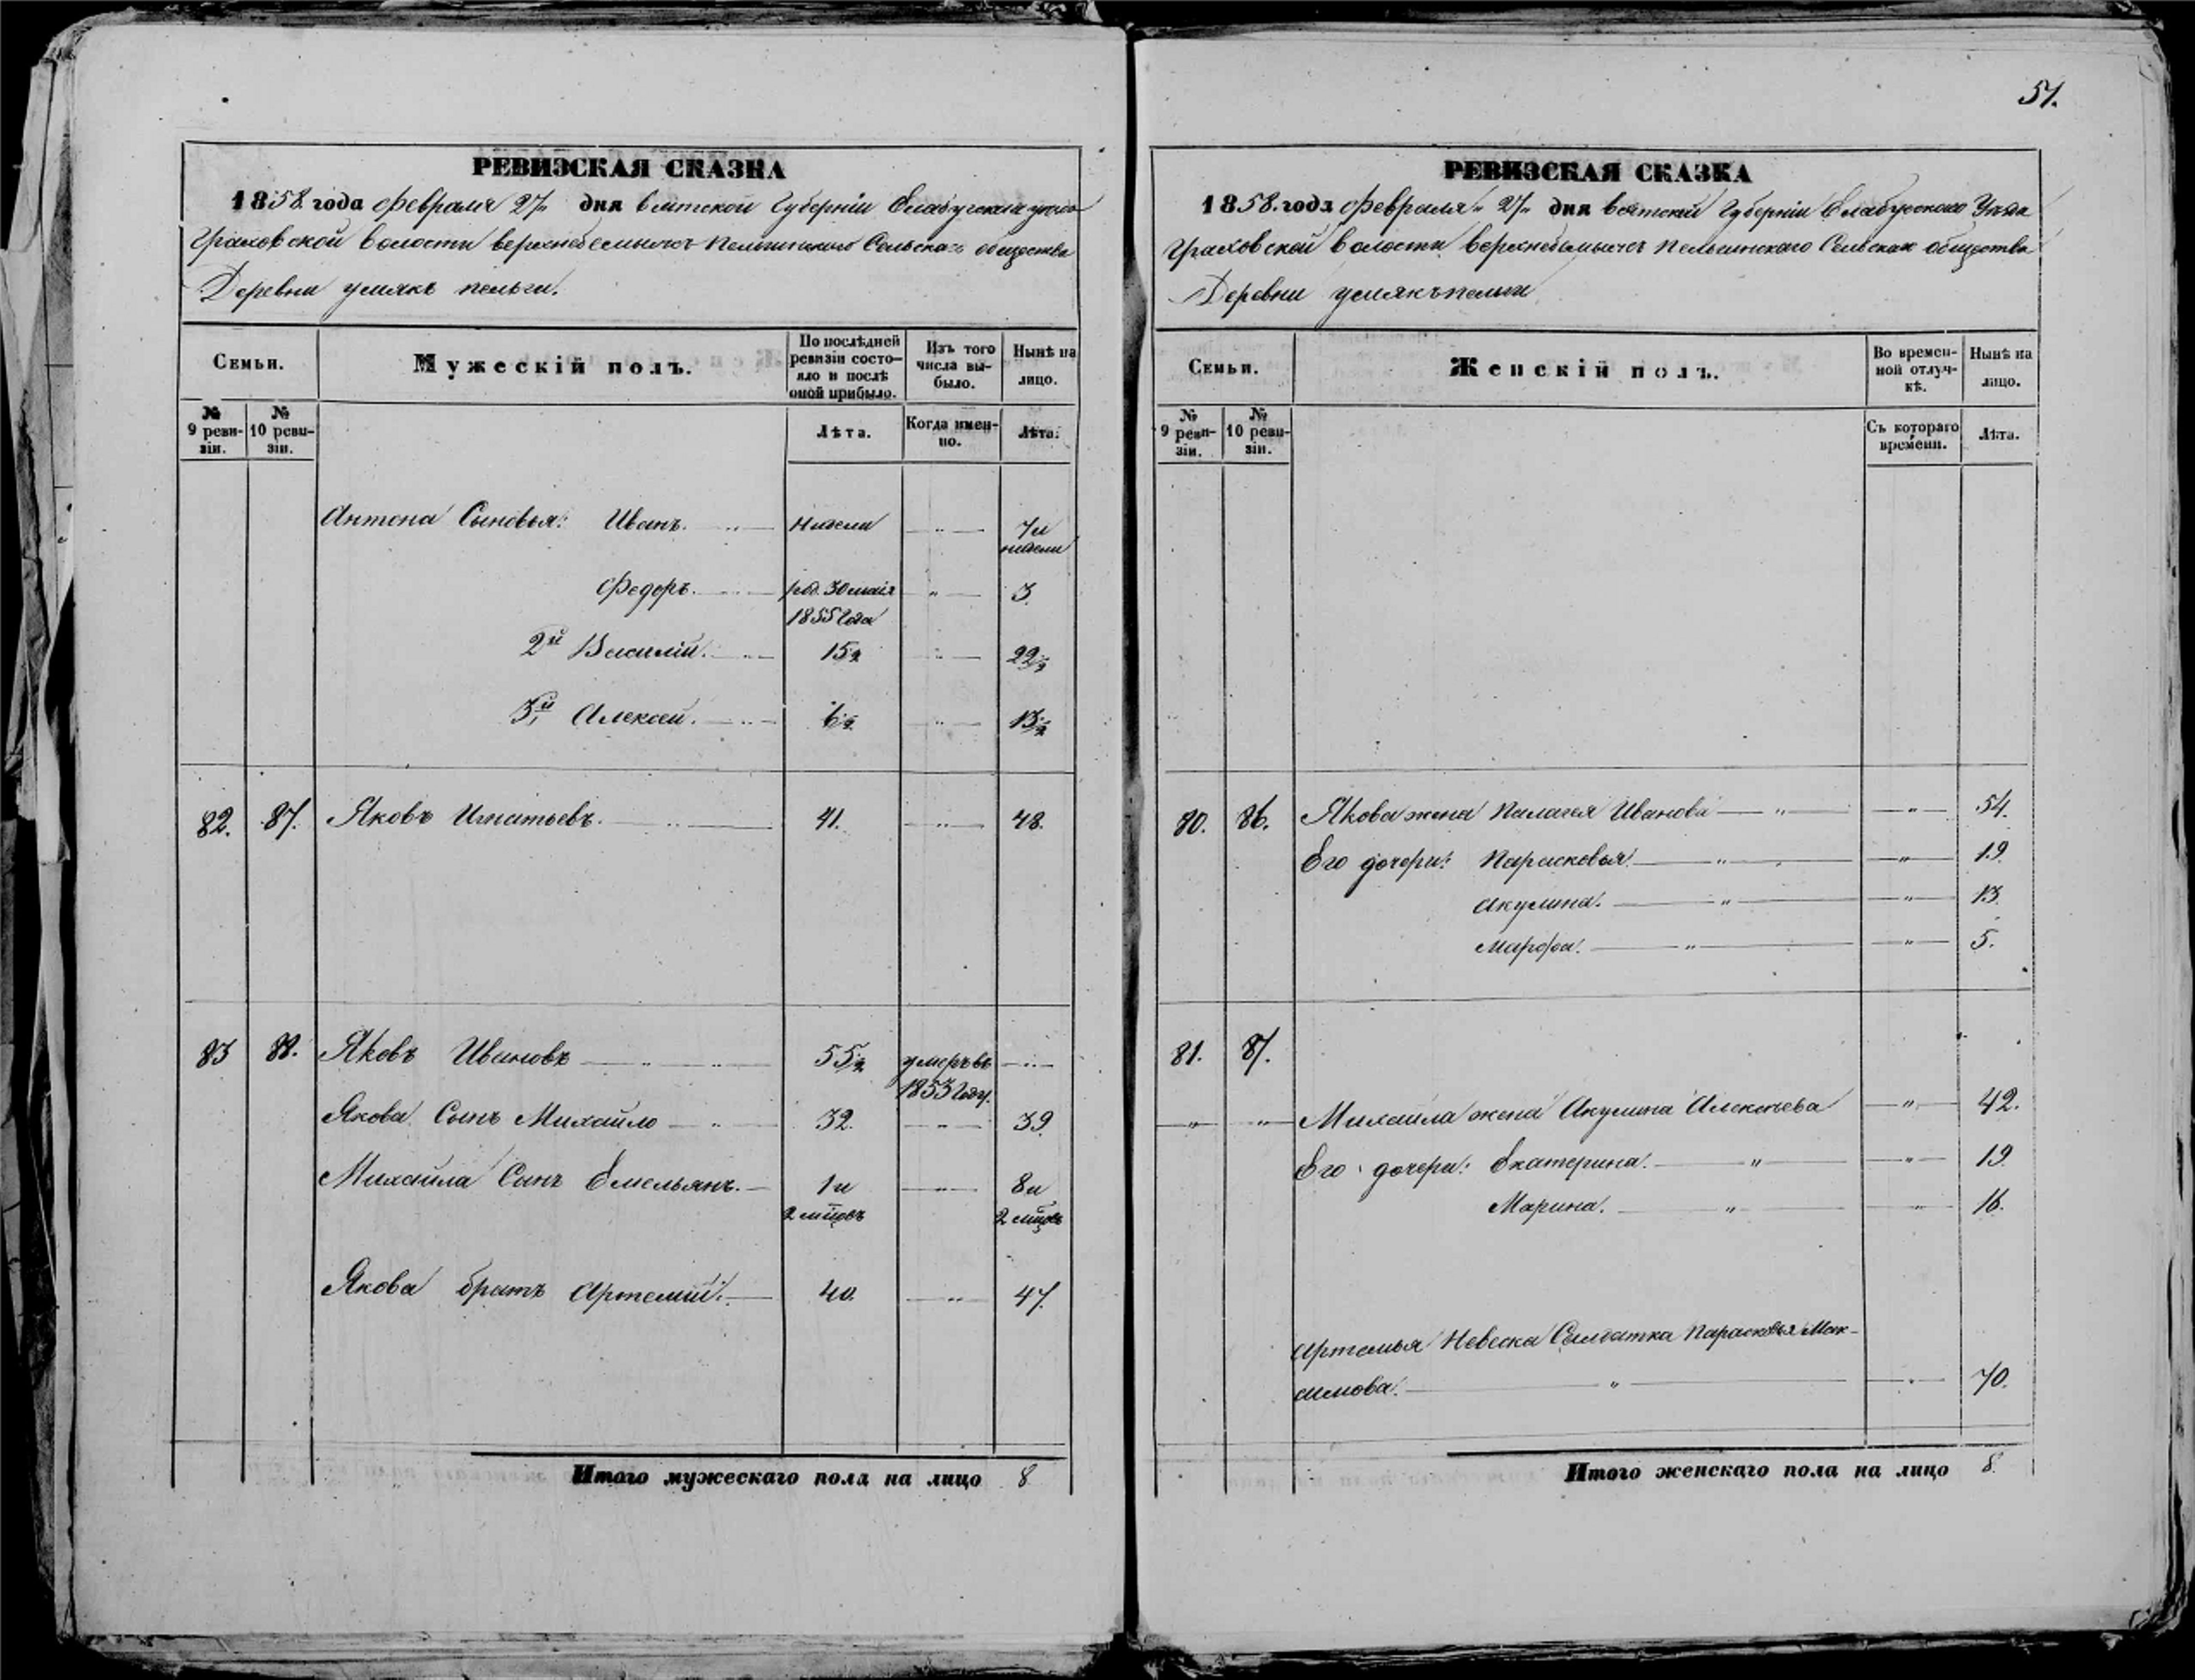 51.
РЕВИЗСКАЯ СКАЗКА
1858 года февраля 27 дня Вятской Губерніи Елабугскаго уезда
Граховской волости Сельскаго общества
Деревни Усмякъ пельги.
Семьи.
Мужескій полъ.
По послѣдней ревизіи состояло и послѣ оной прибыло.
Изъ того числа выбыло.
Нынѣ на лицо.
№ 9 ревизіи.
№ 10 ревизіи.
Лѣта.
Когда именно.
Лѣта.
Антона Сыновья: Иванъ. недели 7 и недели
Федоръ. род. 30 маія 1855 года 3.
2й Василій. 15½ 22½
3й Алексей. 6½ 13½
82. 87. Яковъ Игнатьевъ. 41. 48.
83 88. Яковъ Ивановъ 55½ умеръ въ 1853 году.
Якова Сынъ Михайло 32. 39
Михайла Сынъ Емельянъ. 1 и 2 мцовъ 8 и 2 мцовъ
Якова братъ Артемій. 40. 47.
Итого мужескаго пола на лицо 8
РЕВИЗСКАЯ СКАЗКА
1858. года февраля 27 дня Вятской Губерніи Елабугскаго Уезда
Граховской волости Сельскаго общества
Деревни Усмякъ пельги
Семьи.
Женскій полъ.
Во временной отлучкѣ.
Нынѣ на лицо.
№ 9 ревизіи.
№ 10 ревизіи.
Съ котораго времени.
Лѣта.
80. 86. Якова жена Палагея Иванова 54.
Его дочери: Парасковья 19.
Акулина. 13.
Марфа. 5.
81. 87.
Михайла жена Акулина Алексеева 42.
Его дочери: Екатерина. 19
Марина. 16.
Артемья Невеска Солдатка Парасковья Мак-
симова. 70.
Итого женскаго пола на лицо 8.